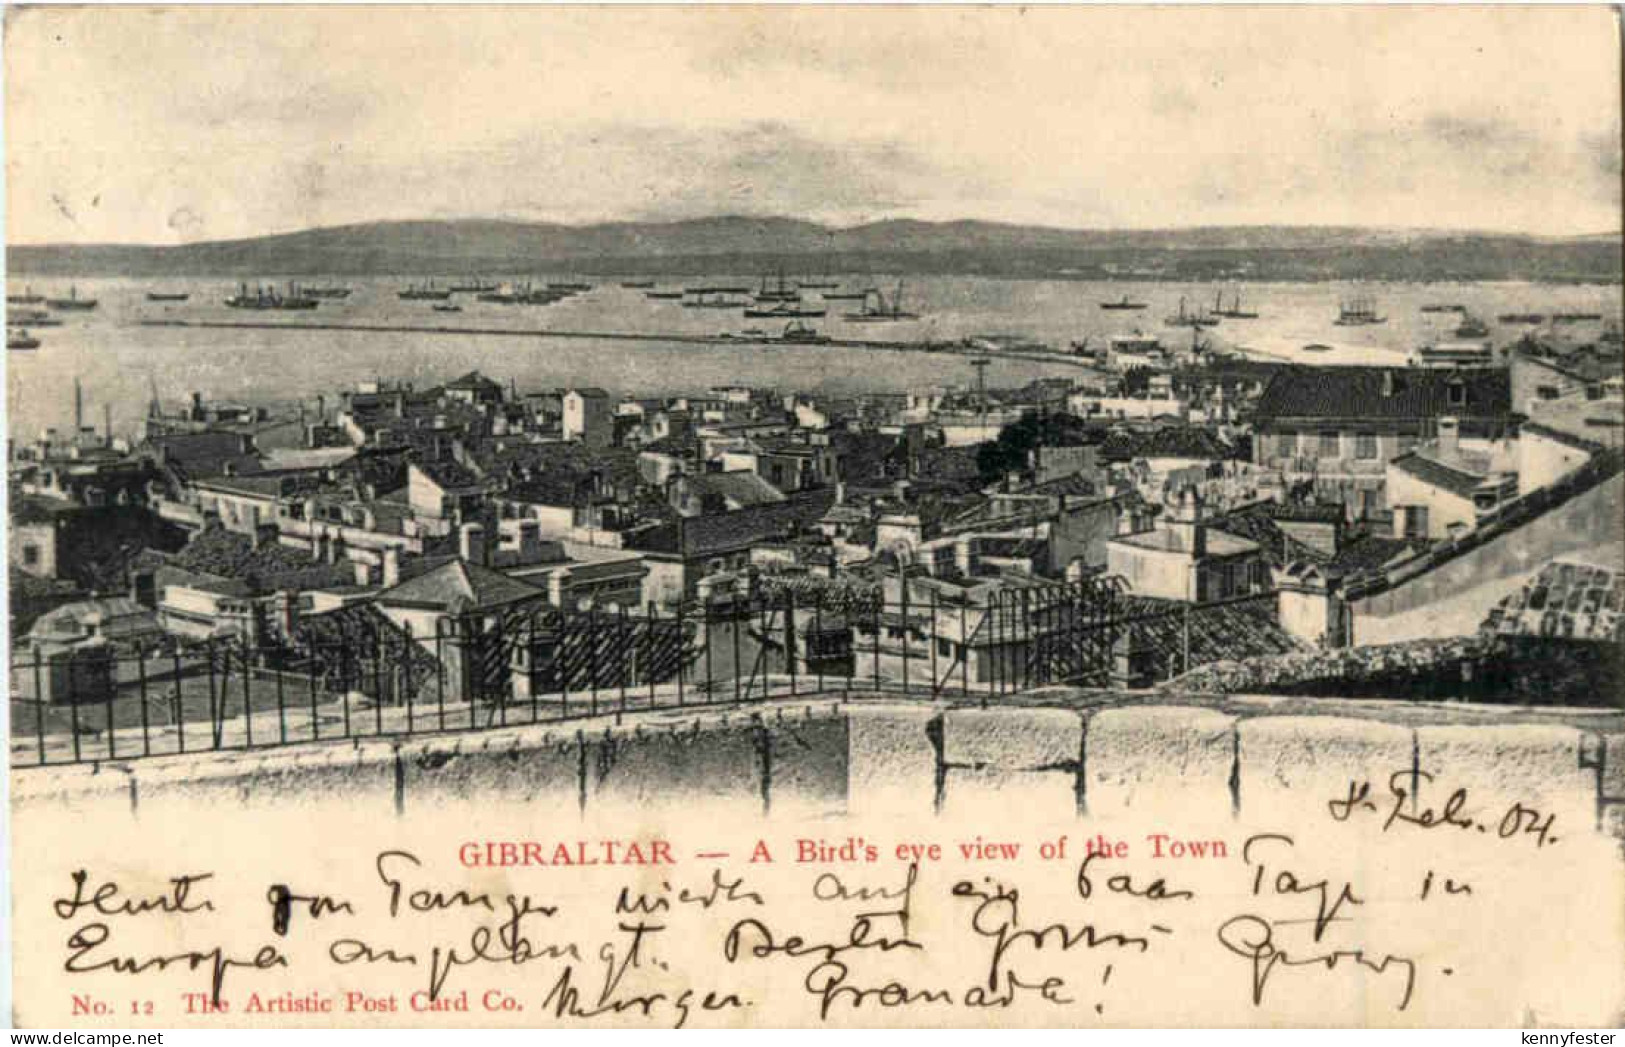 Febr. 04.
GIBRALTAR — A Bird's eye view of the Town
Heute von Tanger wieder auf ein Paar Tage in
Europa angelangt. Besten Gruss Georg.
No. 12 The Artistic Post Card Co. Morgen Granada!
delcampe.net
kennyfester